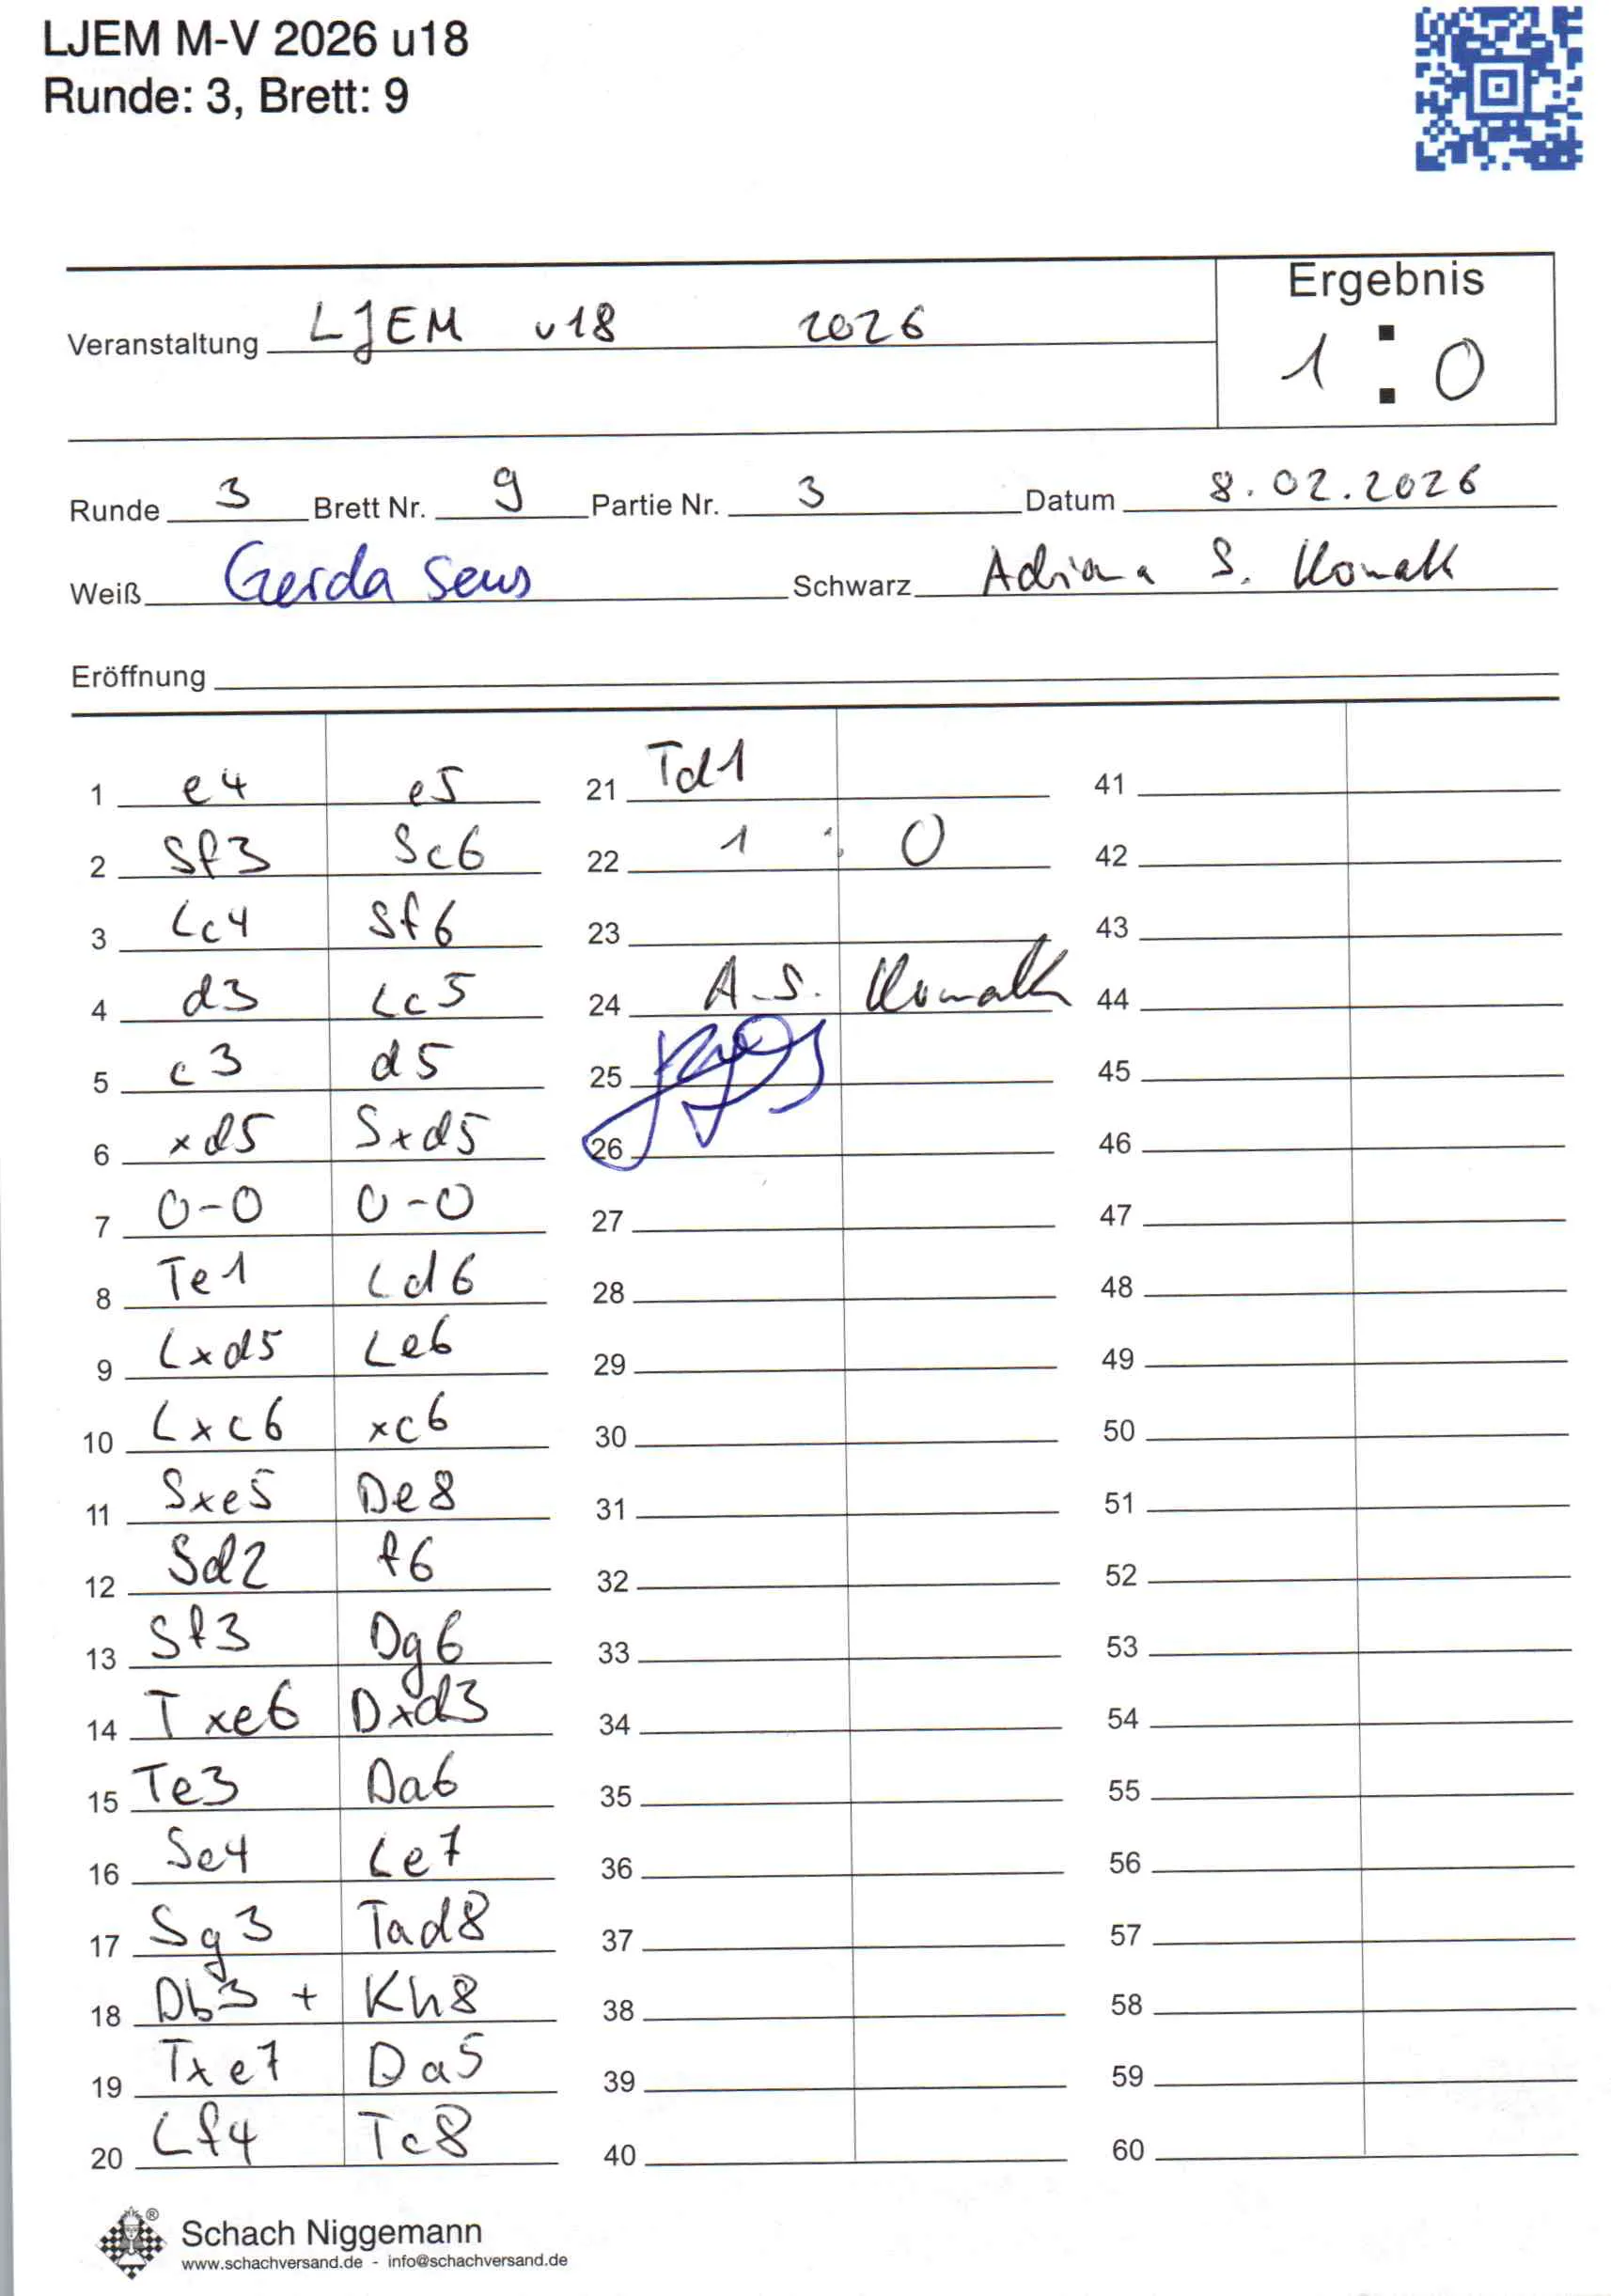 LJEM M-V 2026 u18
Runde: 3, Brett: 9
Ergebnis
Veranstaltung LJEM u18 2026
1 : 0
Runde 3 Brett Nr. 9 Partie Nr. 3 Datum 8.02.2026
Weiß Gerda Sens Schwarz Adriana S. Nowak
Eröffnung
1 e4 e5
2 Sf3 Sc6
3 Lc4 Sf6
4 d3 Lc5
5 c3 d5
6 xd5 Sxd5
7 0-0 0-0
8 Te1 Ld6
9 Lxd5 Le6
10 Lxc6 xc6
11 Sxe5 De8
12 Sd2 f6
13 Sf3 Dg6
14 Txe6 Dxd3
15 Te3 Da6
16 Se4 Le7
17 Sg3 Tad8
18 Db3+ Kh8
19 Txe7 Da5
20 Lf4 Tc8
21 Td1
22 1 : 0
23
24 A.S. Nowak
25
26
27
28
29
30
31
32
33
34
35
36
37
38
39
40
41
42
43
44
45
46
47
48
49
50
51
52
53
54
55
56
57
58
59
60
Schach Niggemann
www.schachversand.de - info@schachversand.de